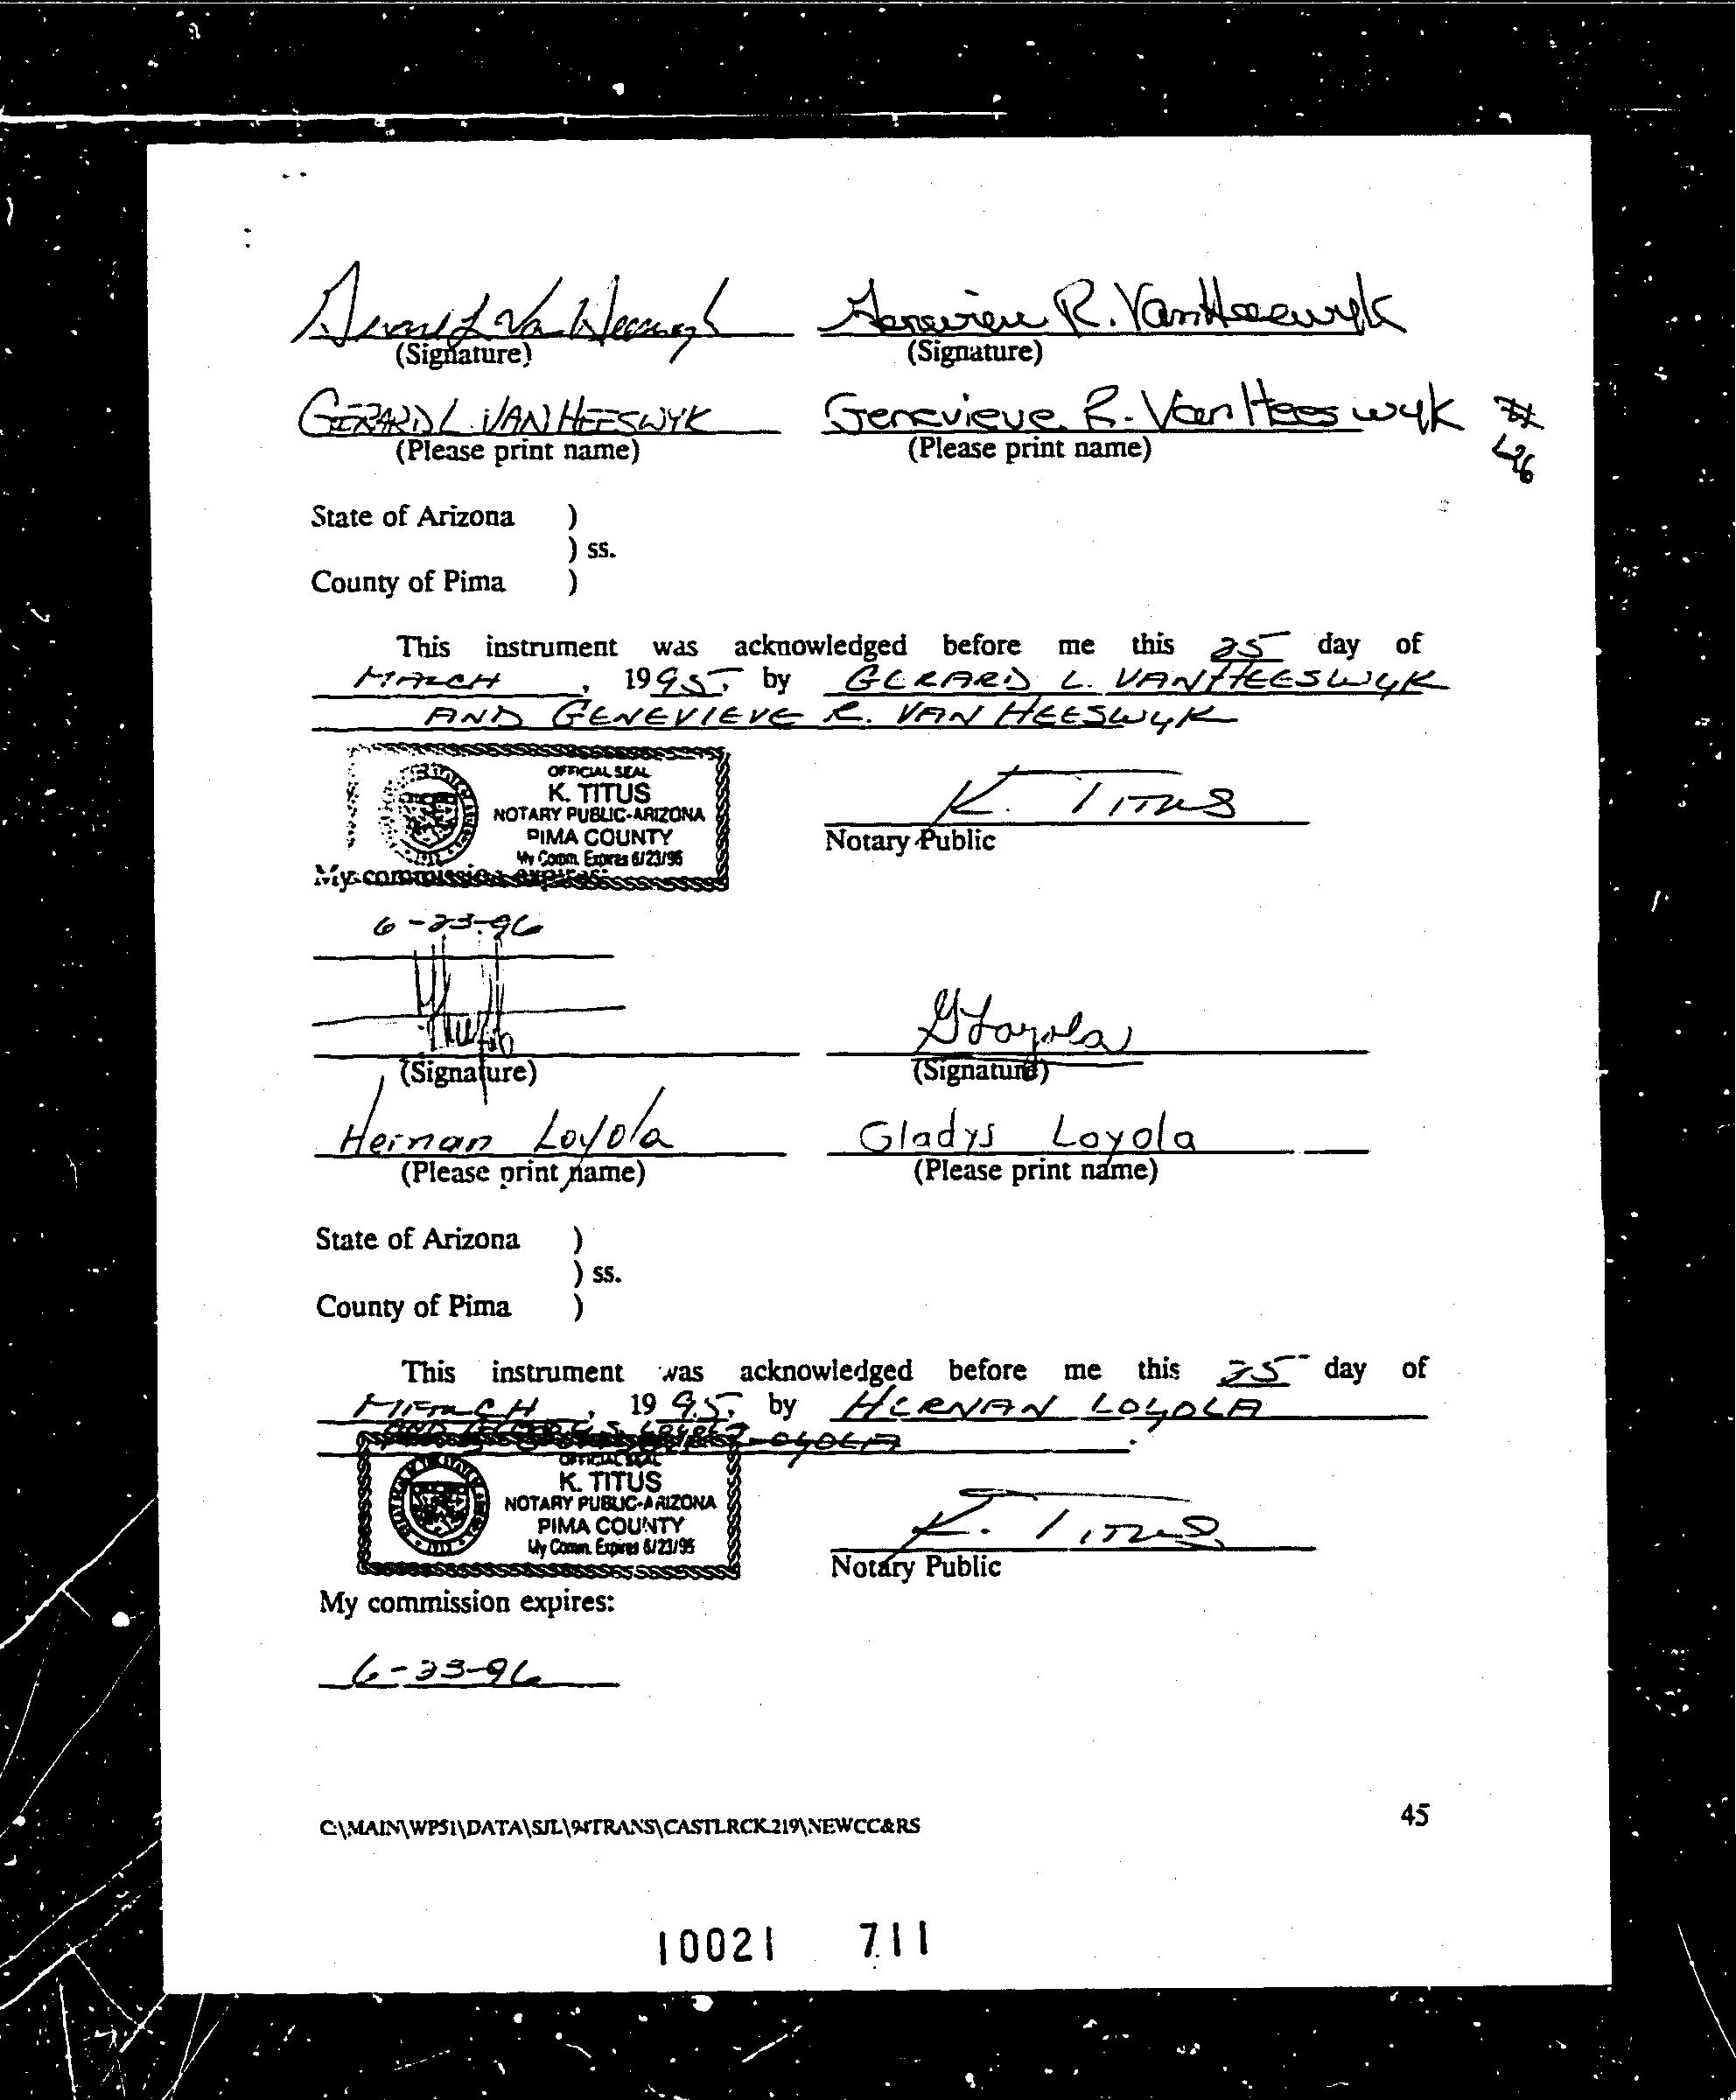 (Signature) (Signature)
GERARD L. VAN HEESWYK Genevieve R. Van Heeswyk
(Please print name) (Please print name)
State of Arizona )
) ss.
County of Pima )
This instrument was acknowledged before me this 25 day of
MARCH, 1995, by GERARD L. VAN HEESWYK
AND GENEVIEVE R. VAN HEESWYK
OFFICIAL SEAL
K. TITUS
NOTARY PUBLIC-ARIZONA
PIMA COUNTY
My Comm. Expires 6/23/96
K. Titus
Notary Public
My commission expires:
6-23-96
G Loyola
(Signature) (Signature)
Hernan Loyola Gladys Loyola
(Please print name) (Please print name)
State of Arizona )
) ss.
County of Pima )
This instrument was acknowledged before me this 25 day of
MARCH, 1995, by HERNAN LOYOLA
OFFICIAL SEAL
K. TITUS
NOTARY PUBLIC-ARIZONA
PIMA COUNTY
My Comm. Expires 6/23/96
K. Titus
Notary Public
My commission expires:
6-23-96
C:\MAIN\WP51\DATA\SJL\94TRANS\CASTLRCK.219\NEWCC&RS 45
10021 711